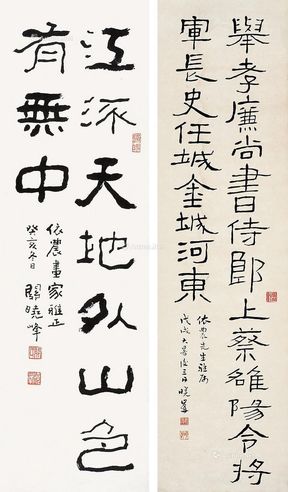 舉孝廉尚書侍郎上蔡雒陽令將
軍長史任城金城河東
依農先生雅屬
戊戌大暑後三日曉峯
江流天地外山色
有無中
依農畫家雅正
癸亥冬日關曉峰